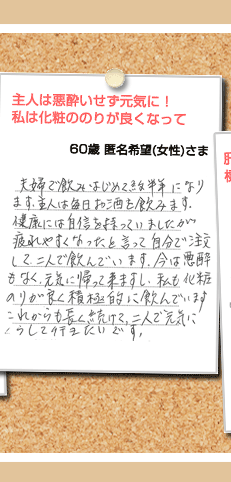 主人は悪酔いせず元気に！
私は化粧ののりが良くなって
60歳 匿名希望(女性)さま
夫婦で飲みはじめて約半年になり
ます。主人は毎日お酒を飲みます。
健康には自信を持っていましたが
疲れやすくなったと言って自分で注文
して二人で飲んでいます。今は悪酔
もなく、元気に帰って来ますし、私も化粧
のりが良く積極的に飲んでいます
これからも長く続けて、二人で元気に
くらして行きたいです。